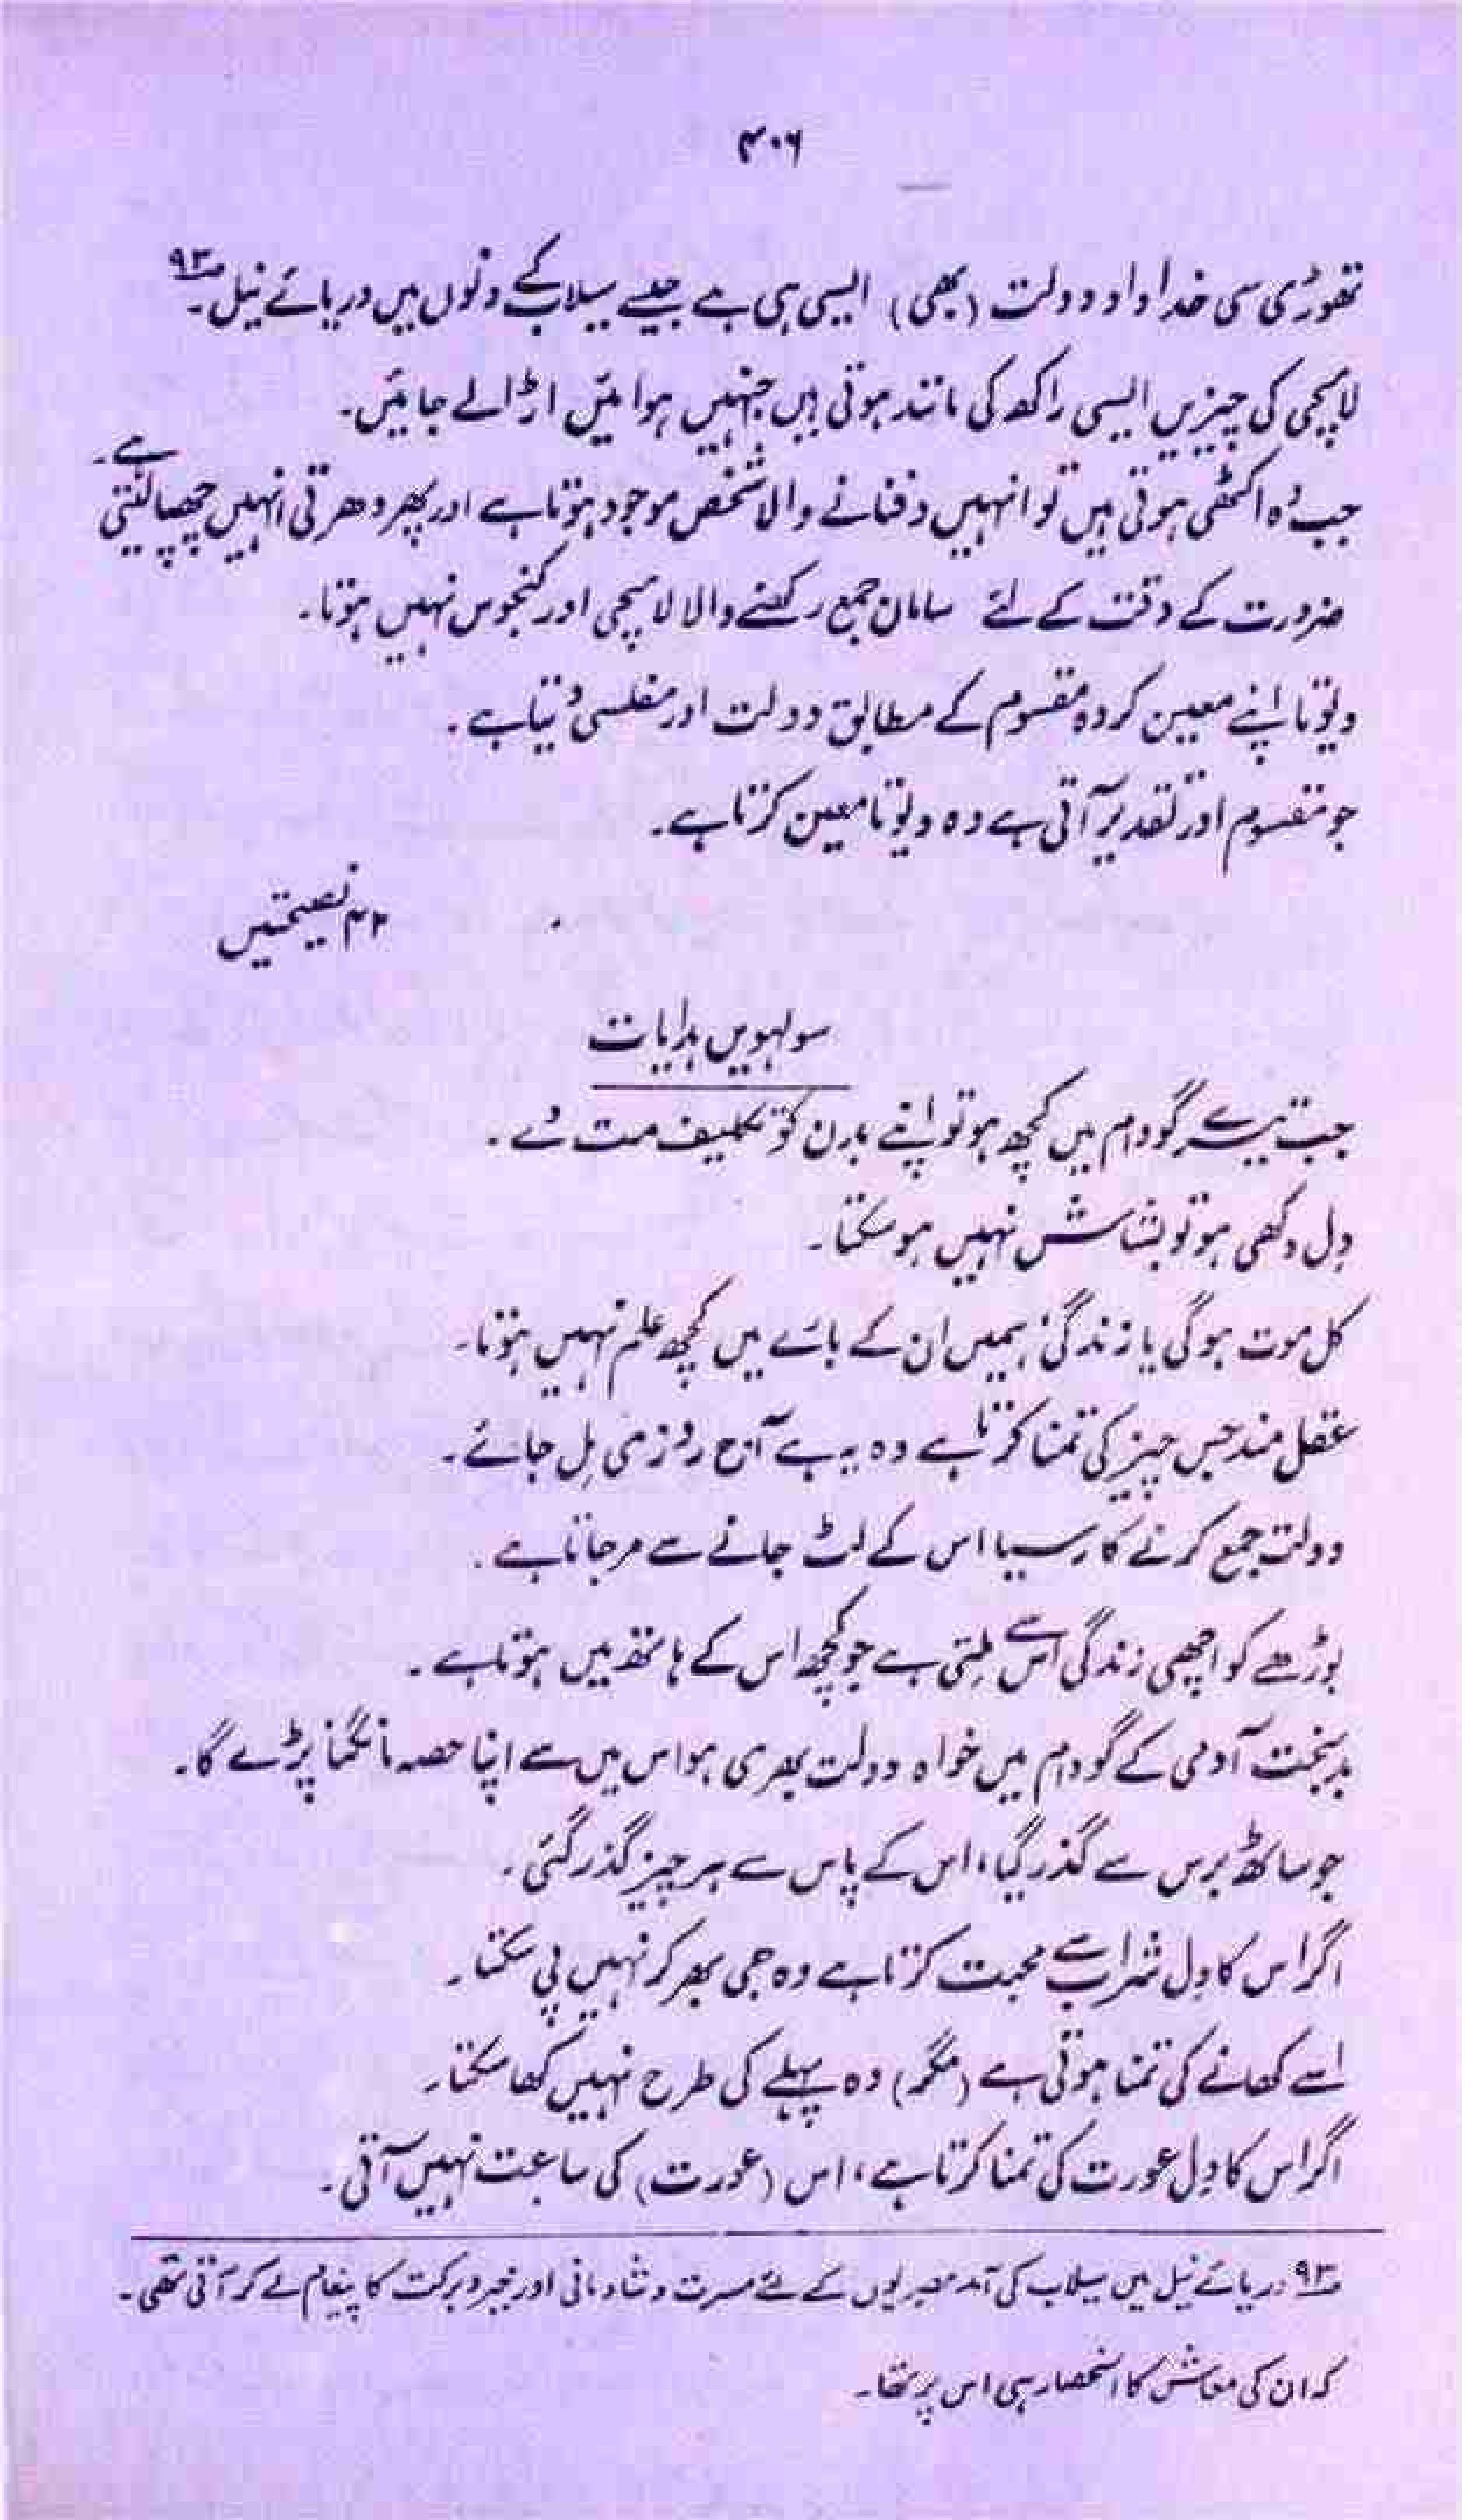 ۴۰۶
تھوڑی سی خداداد دولت (بھی) ایسی ہی ہے جیسے سیلاب کے دنوں میں دریائے نیل۔ ۹۳
لالچی کی چیزیں ایسی راکھ کی مانند ہوتی ہیں جنہیں ہوائیں اڑا لے جائیں۔
جب وہ اکٹھی ہوتی ہیں تو انہیں دفنانے والا شخص موجود ہوتا ہے اور پھر دھرتی انہیں چھپا لیتی ہے۔
ضرورت کے وقت کے لئے سامان جمع رکھنے والا لالچی اور کنجوس نہیں ہوتا۔
دیوتا اپنے معین کردہ مقسوم کے مطابق دولت اور مفلسی دیتا ہے۔
جو مقسوم اور تقدیر آتی ہے وہ دیوتا معین کرتا ہے۔
۴۲ نصیحتیں
سولہویں ہدایات
جب تیرے گودام میں کچھ ہو تو اپنے بدن کو تکلیف مت دے۔
دِل دکھی ہو تو بشاش نہیں ہو سکتا۔
کل موت ہوگی یا زندگی، ہمیں ان کے بارے میں کچھ علم نہیں ہوتا۔
عقل مند جس چیز کی تمنا کرتا ہے وہ یہ ہے آج روزی مِل جائے۔
دولت جمع کرنے کا رسیا اس کے لٹ جانے سے مر جاتا ہے۔
بوڑھے کو اچھی زندگی اس سے مِلتی ہے جو کچھ اس کے ہاتھ میں ہوتا ہے۔
بدبخت آدمی کے گودام میں خواہ دولت بھری ہو اس میں سے اپنا حصہ مانگنا پڑے گا۔
جو ساٹھ برس سے گذر گیا، اس کے پاس سے ہر چیز گذر گئی۔
اگر اس کا دِل شراب سے محبت کرتا ہے وہ جی بھر کر نہیں پی سکتا۔
اسے کھانے کی تمنا ہوتی ہے (مگر) وہ پہلے کی طرح نہیں کھا سکتا۔
اگر اس کا دِل عورت کی تمنا کرتا ہے، اس (عورت) کی ساعت نہیں آتی۔
۹۳ دریائے نیل میں سیلاب کی آمد مصریوں کے لئے مسرت و شادمانی اور خیر و برکت کا پیغام لے کر آتی تھی۔
کہ ان کی معاش کا انحصار ہی اس پر تھا۔